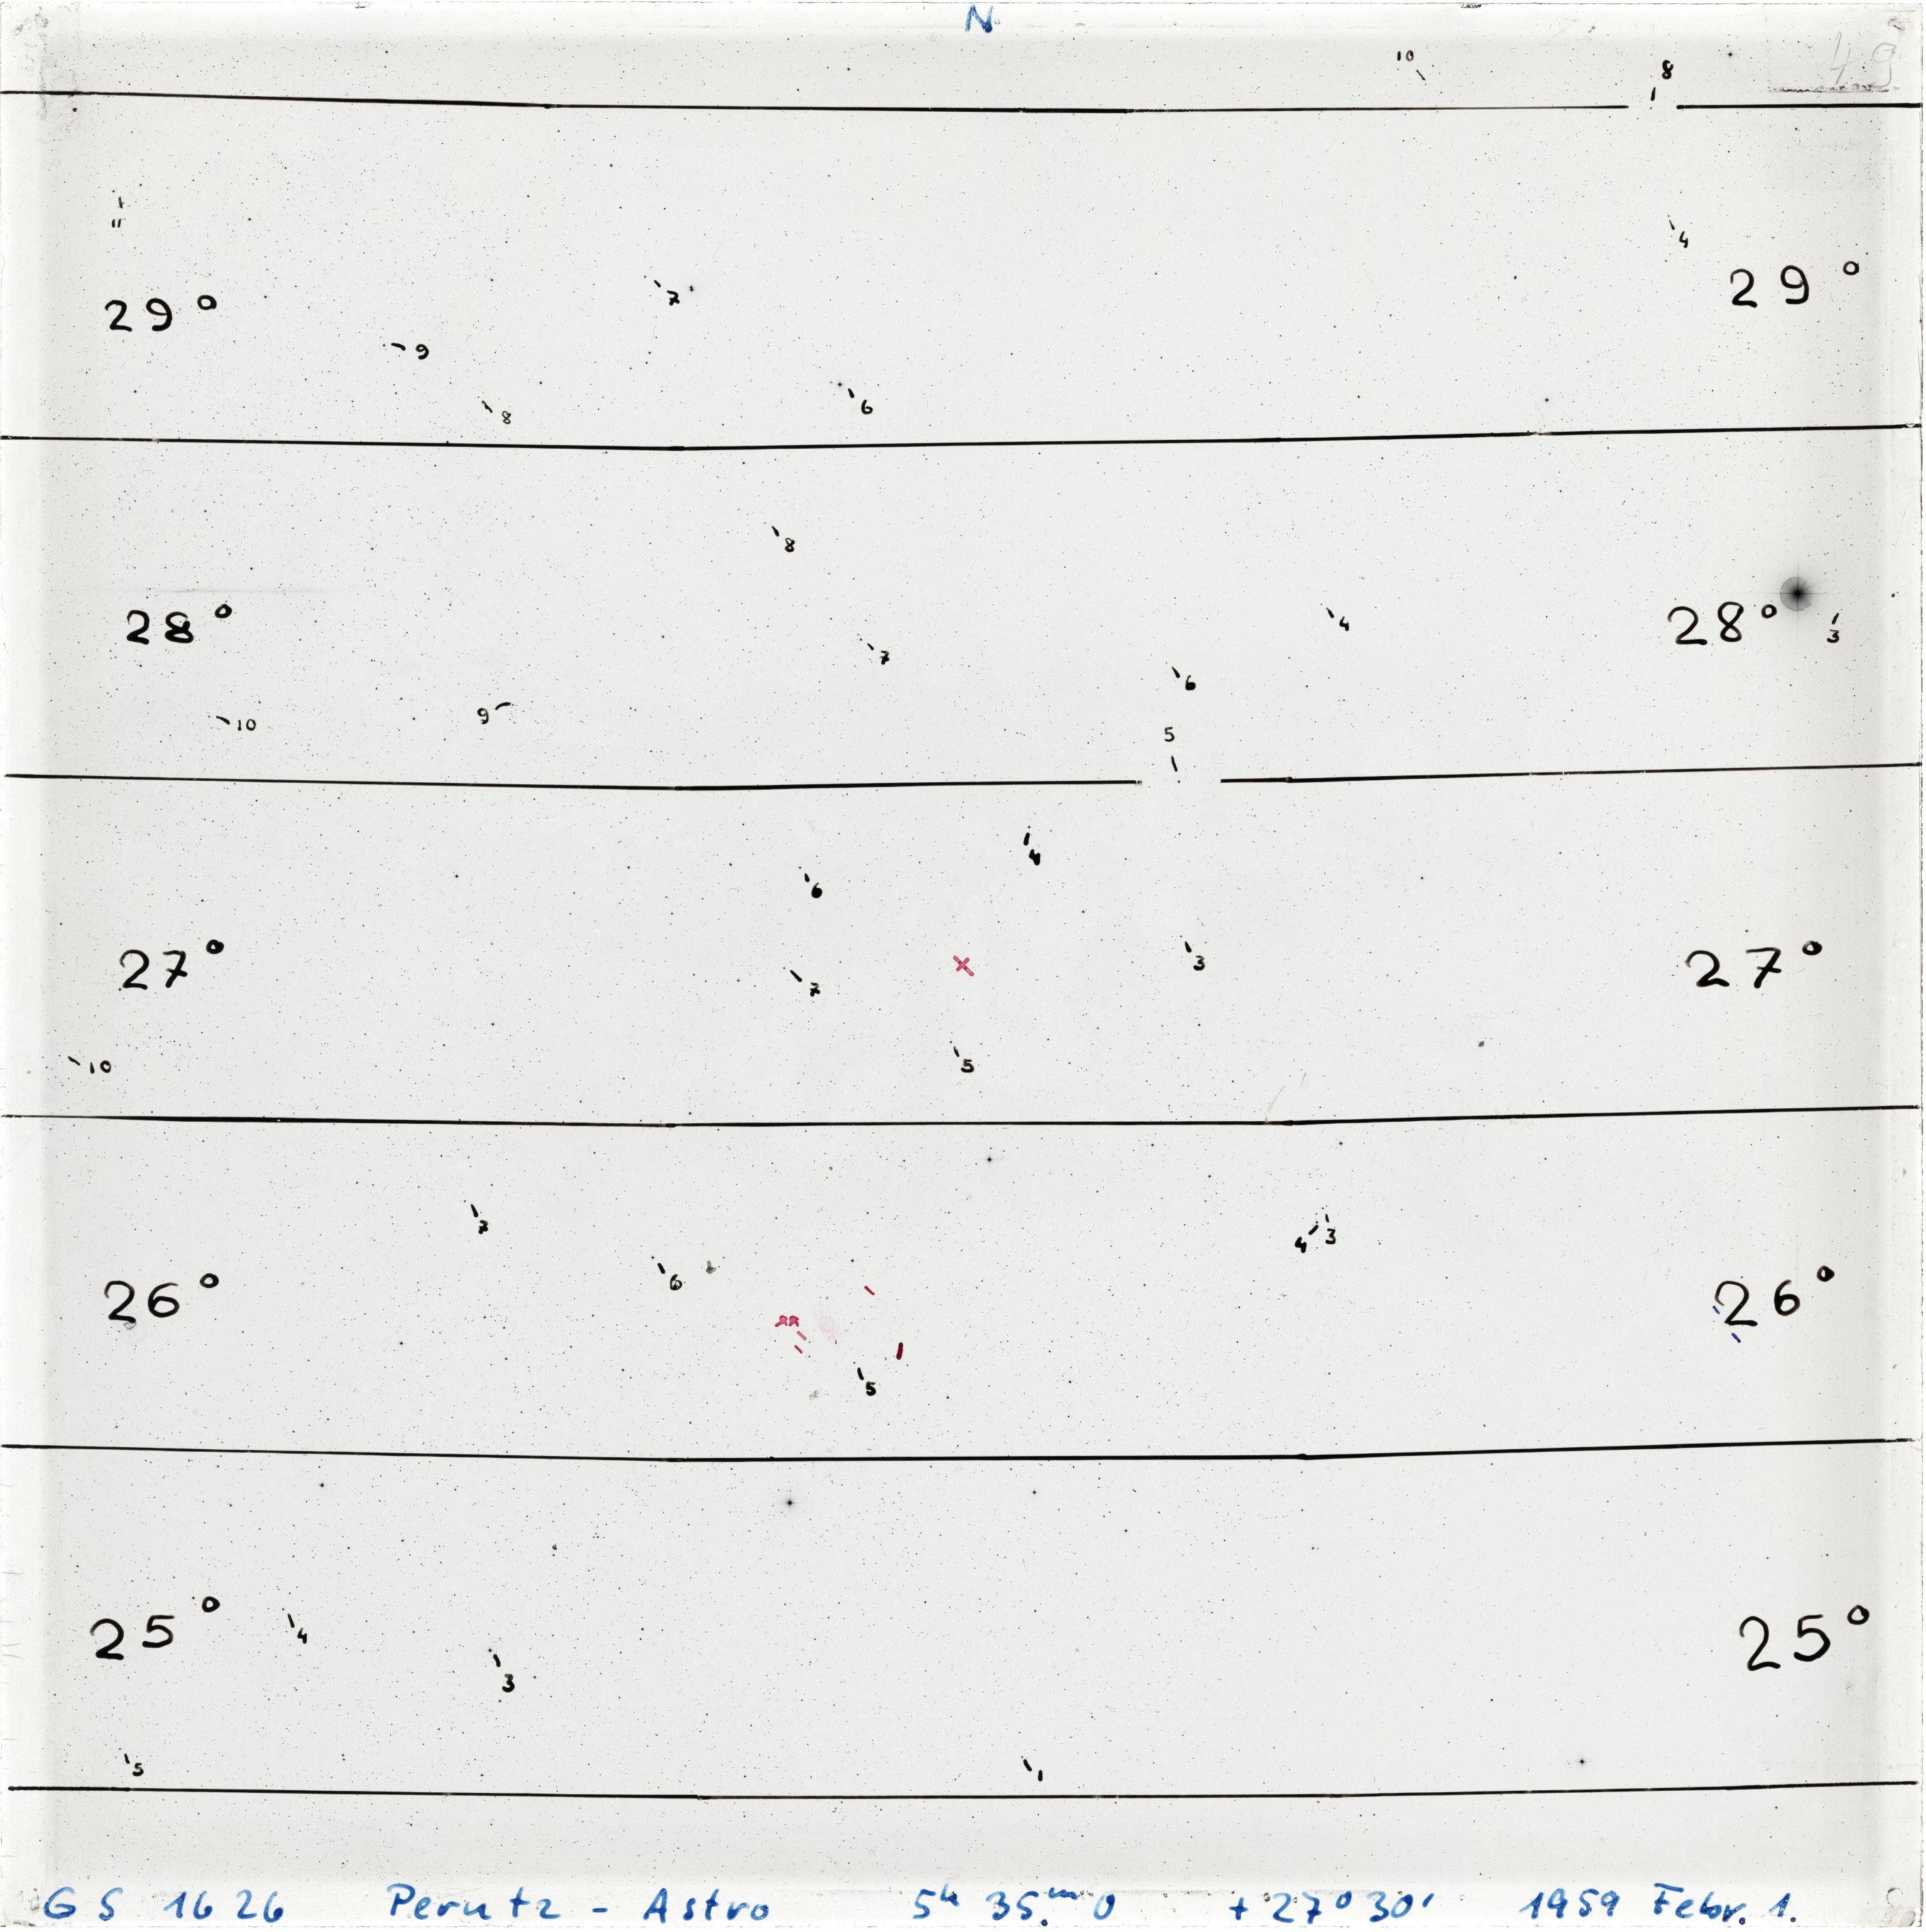 N
10
8
49
11
4
29° 29°
7
9
8
6
8
28° 28°
4
3
7
6
9
10
5
4
6
27° 27°
3
7
10
5
7
4 3
6
26° 26°
RR
5
25° 25°
4
3
5
1
GS 1626 Perutz - Astro 5h 35.m0 +27°30' 1959 Febr. 1.